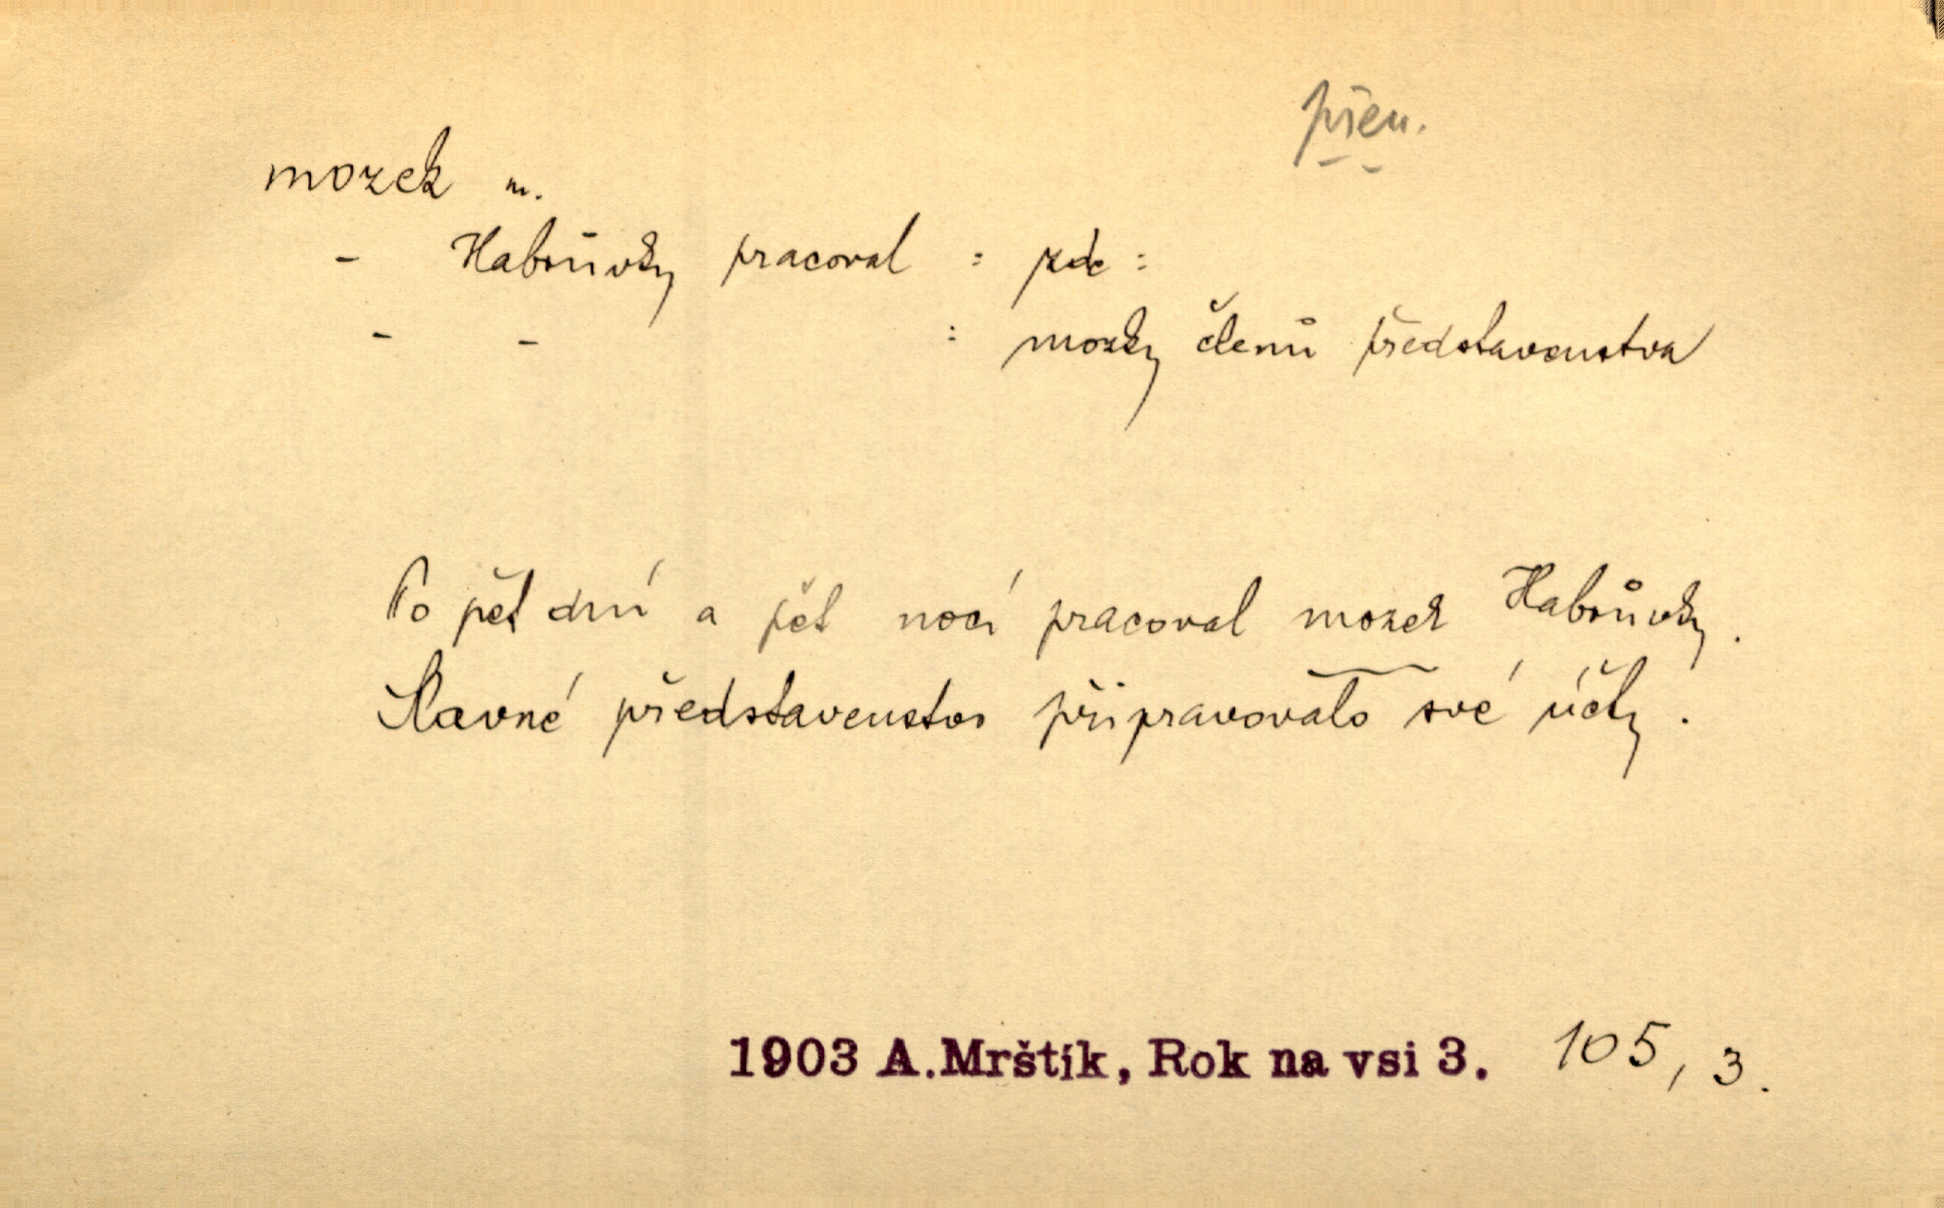 přen.
mozek m.
- Habrůvky pracoval : zde :
- - : mozky členů představenstva
Po pět dní a pět nocí pracoval mozek Habrůvky.
Slavné představenstvo připravovalo své účty.
1903 A.Mrštík, Rok na vsi 3. 105, 3.